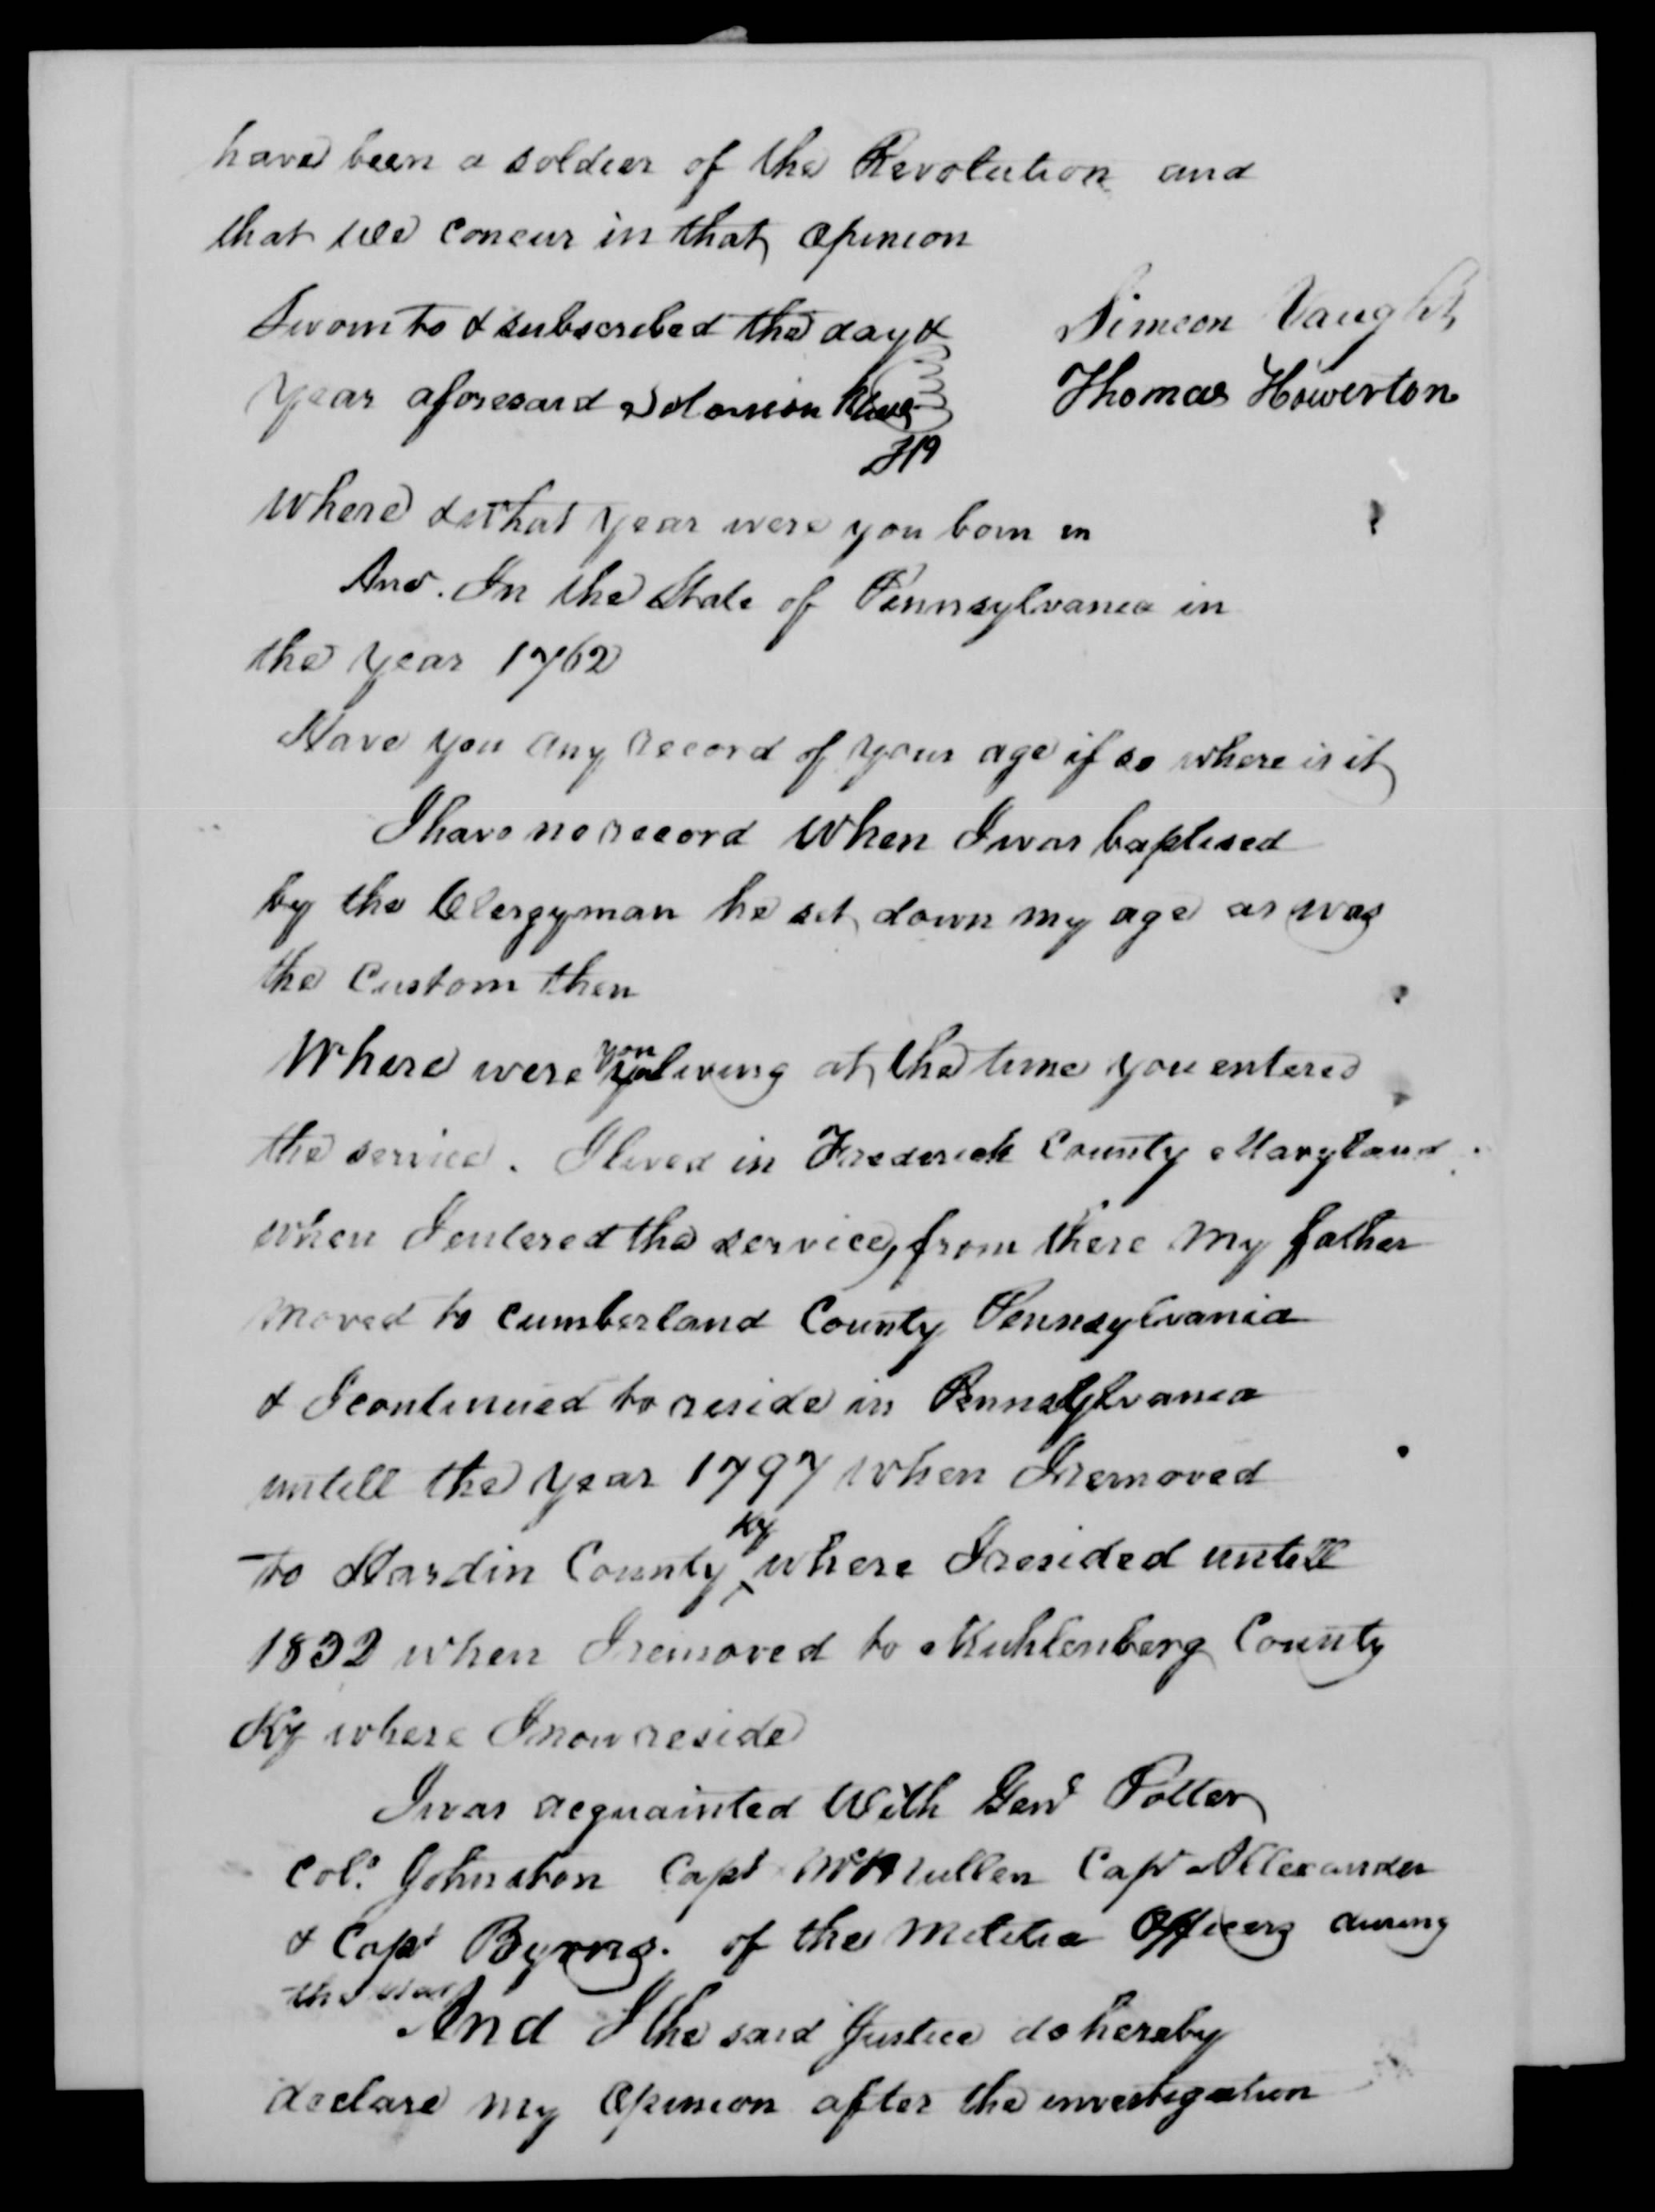 have been a soldier of the Revolution and
that we concur in that opinion
Sworn to & subscribed the day & Simeon Vaught
year aforesaid Solomon Thomas Howerton
JP
Where & what year were you born in
Ans. In the State of Pennsylvania in
the year 1762
Have you any record of your age if so where is it
I have no record when I was baptised
by the Clergyman he set down my age as was
the custom then
Where were you living at the time you entered
the service. I lived in Frederick County Maryland.
when I entered the service, from there my father
moved to cumberland County Pennsylvania
& I continued to reside in Pennsylvania
untill the year 1797 when I removed
to Hardin County Ky where I resided untill
1832 when I removed to Muhlenberg County
Ky where I now reside
I was acquainted with Genl Potter
Colo. Johnston Capt McMullen Capt Allexander
& Capt Byrns. of the Militia Officers during
the war
And I the said Justice do hereby
declare my opinion after the investigation